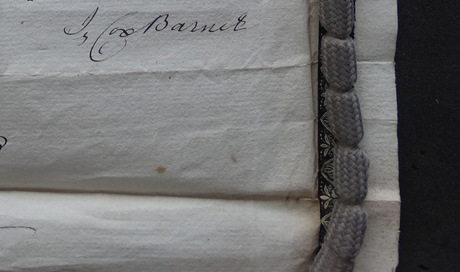 Is Cox Barnet